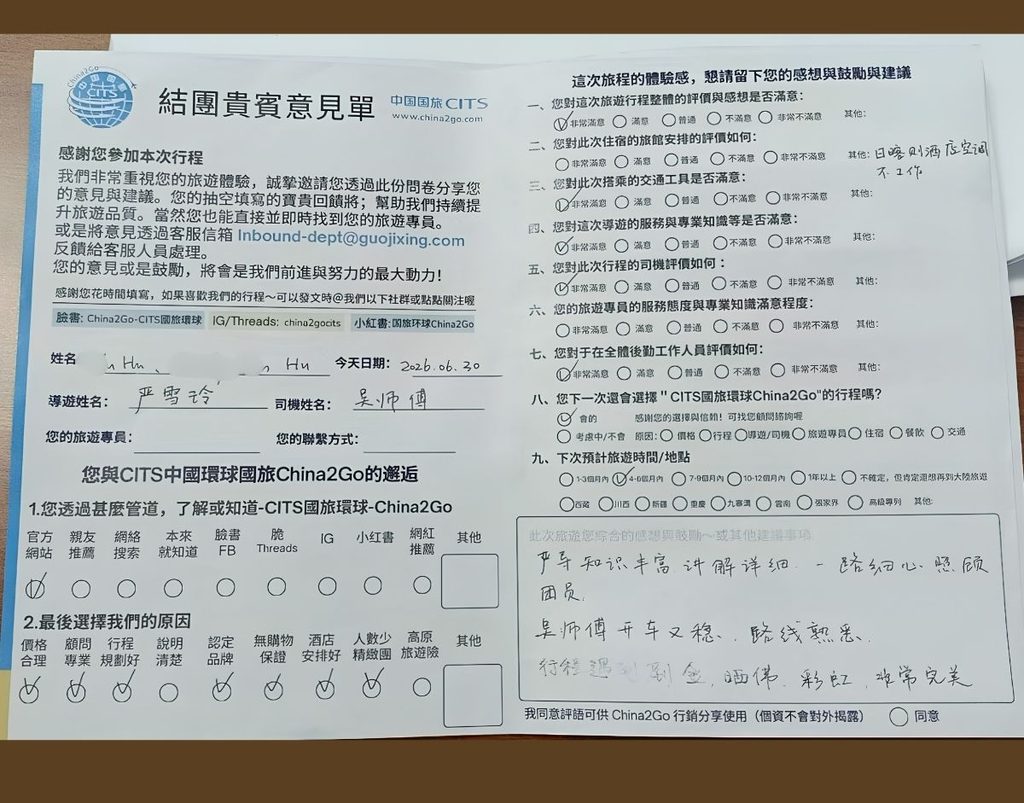 China2Go
CITS
結團貴賓意見單
中国国旅 CITS
www.china2go.com
感謝您參加本次行程
我們非常重視您的旅遊體驗，誠摯邀請您透過此份問卷分享您
的意見與建議。您的抽空填寫的寶貴回饋將；幫助我們持續提
升旅遊品質。當然您也能直接並即時找到您的旅遊專員。
或是將意見透過客服信箱 Inbound-dept@guojixing.com
反饋給客服人員處理。
您的意見或是鼓勵，將會是我們前進與努力的最大動力！
感謝您花時間填寫，如果喜歡我們的行程～可以發文時@我們以下社群或點點關注喔
臉書: China2Go-CITS國旅環球 IG/Threads: china2gocits 小紅書:国旅环球China2Go
姓名 Hu、 Hu 今天日期: 2026.06.30
導遊姓名: 严雪玲 司機姓名: 吴师傅
您的旅遊專員: 您的聯繫方式:
您與CITS中國環球國旅China2Go的邂逅
1.您透過甚麼管道，了解或知道-CITS國旅環球-China2Go
官方網站 親友推薦 網絡搜索 本來就知道 臉書FB 脆Threads IG 小紅書 網紅推薦 其他
2.最後選擇我們的原因
價格合理 顧問專業 行程規劃好 說明清楚 認定品牌 無購物保證 酒店安排好 人數少精緻團 高原旅遊險 其他
這次旅程的體驗感，懇請留下您的感想與鼓勵與建議
一、您對這次旅遊行程整體的評價與感想是否滿意:
非常滿意 滿意 普通 不滿意 非常不滿意 其他:
二、您對此次住宿的旅館安排的評價如何:
非常滿意 滿意 普通 不滿意 非常不滿意 其他: 日喀则酒店空调
不工作
三、您對此次搭乘的交通工具是否滿意:
非常滿意 滿意 普通 不滿意 非常不滿意 其他:
四、您對這次導遊的服務與專業知識等是否滿意:
非常滿意 滿意 普通 不滿意 非常不滿意 其他:
五、您對此次行程的司機評價如何:
非常滿意 滿意 普通 不滿意 非常不滿意 其他:
六、您的旅遊專員的服務態度與專業知識滿意程度:
非常滿意 滿意 普通 不滿意 非常不滿意 其他:
七、您對于在全體後勤工作人員評價如何:
非常滿意 滿意 普通 不滿意 非常不滿意 其他:
八、您下一次還會選擇" CITS國旅環球China2Go"的行程嗎?
會的 感謝您的選擇與信賴! 可找您顧問諮詢喔
考慮中/不會 原因: 價格 行程 導遊/司機 旅遊專員 住宿 餐飲 交通
九、下次預計旅遊時間/地點
1-3個月內 4-6個月內 7-9個月內 10-12個月內 1年以上 不確定，但肯定還想再到大陸旅遊
西藏 川西 新疆 重慶 九寨溝 雲南 張家界 高級專列 其他:
此次旅遊您綜合的感想與鼓勵～或其他建議事項
严导知识丰富.讲解详细.一路细心照顾
团员.
吴师傅开车又稳、路线熟悉.
行程遇到 金,晒佛.彩虹,非常完美
我同意評語可供 China2Go 行銷分享使用（個資不會對外揭露） 同意